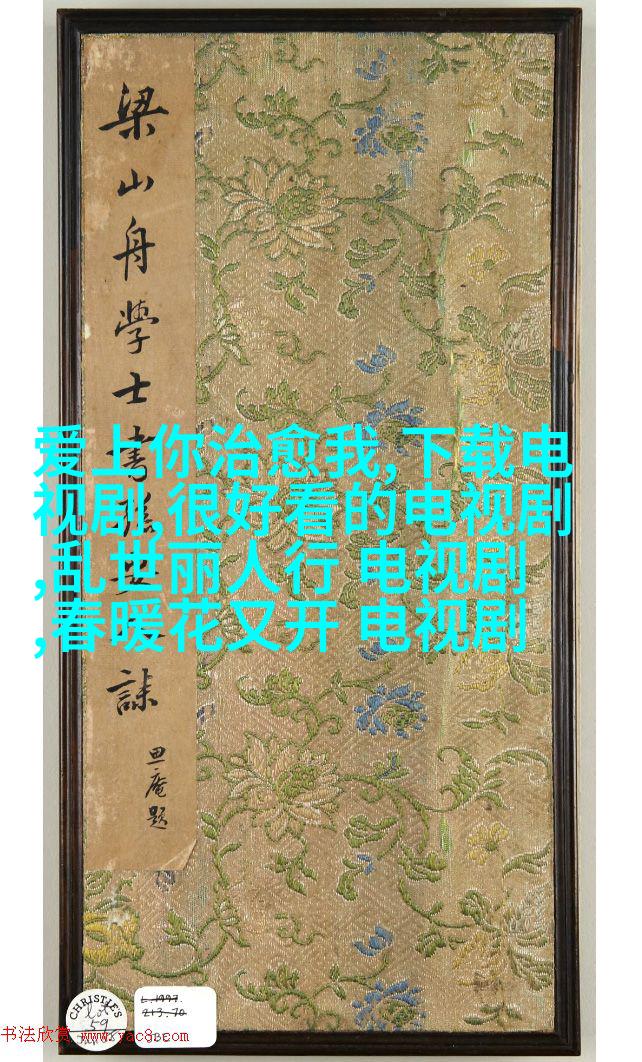 梁山舟學士書
誄
思庵題
爱上你治愈我,下载电
视剧,很好看的电视剧
,乱世丽人行 电视剧
,春暖花又开 电视剧
CHRISTIE'S
lot
59
L.1997.
213.70
书法欣赏 www.yac8.com